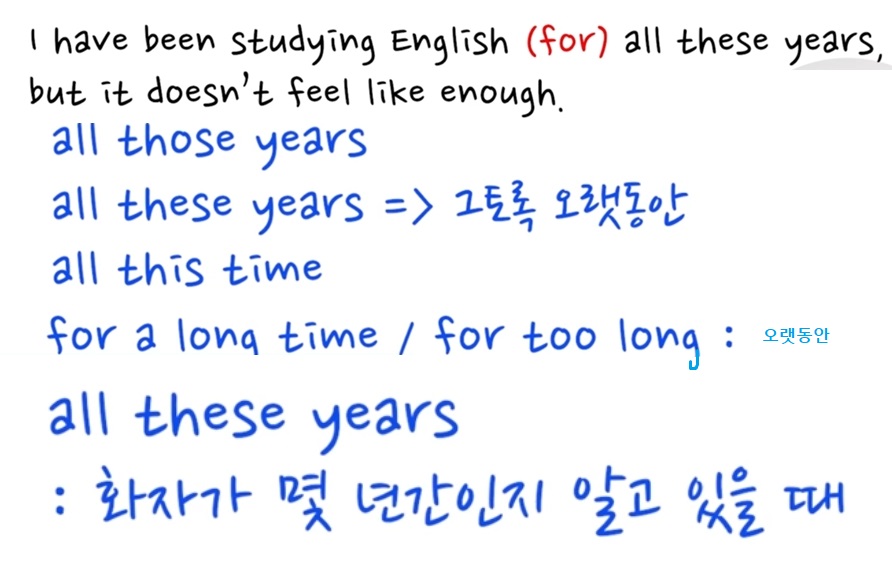 I have been studying English (for) all these years,
but it doesn't feel like enough.
all those years
all these years => 그토록 오랫동안
all this time
for a long time / for too long : 오랫동안
all these years
: 화자가 몇 년간인지 알고 있을 때